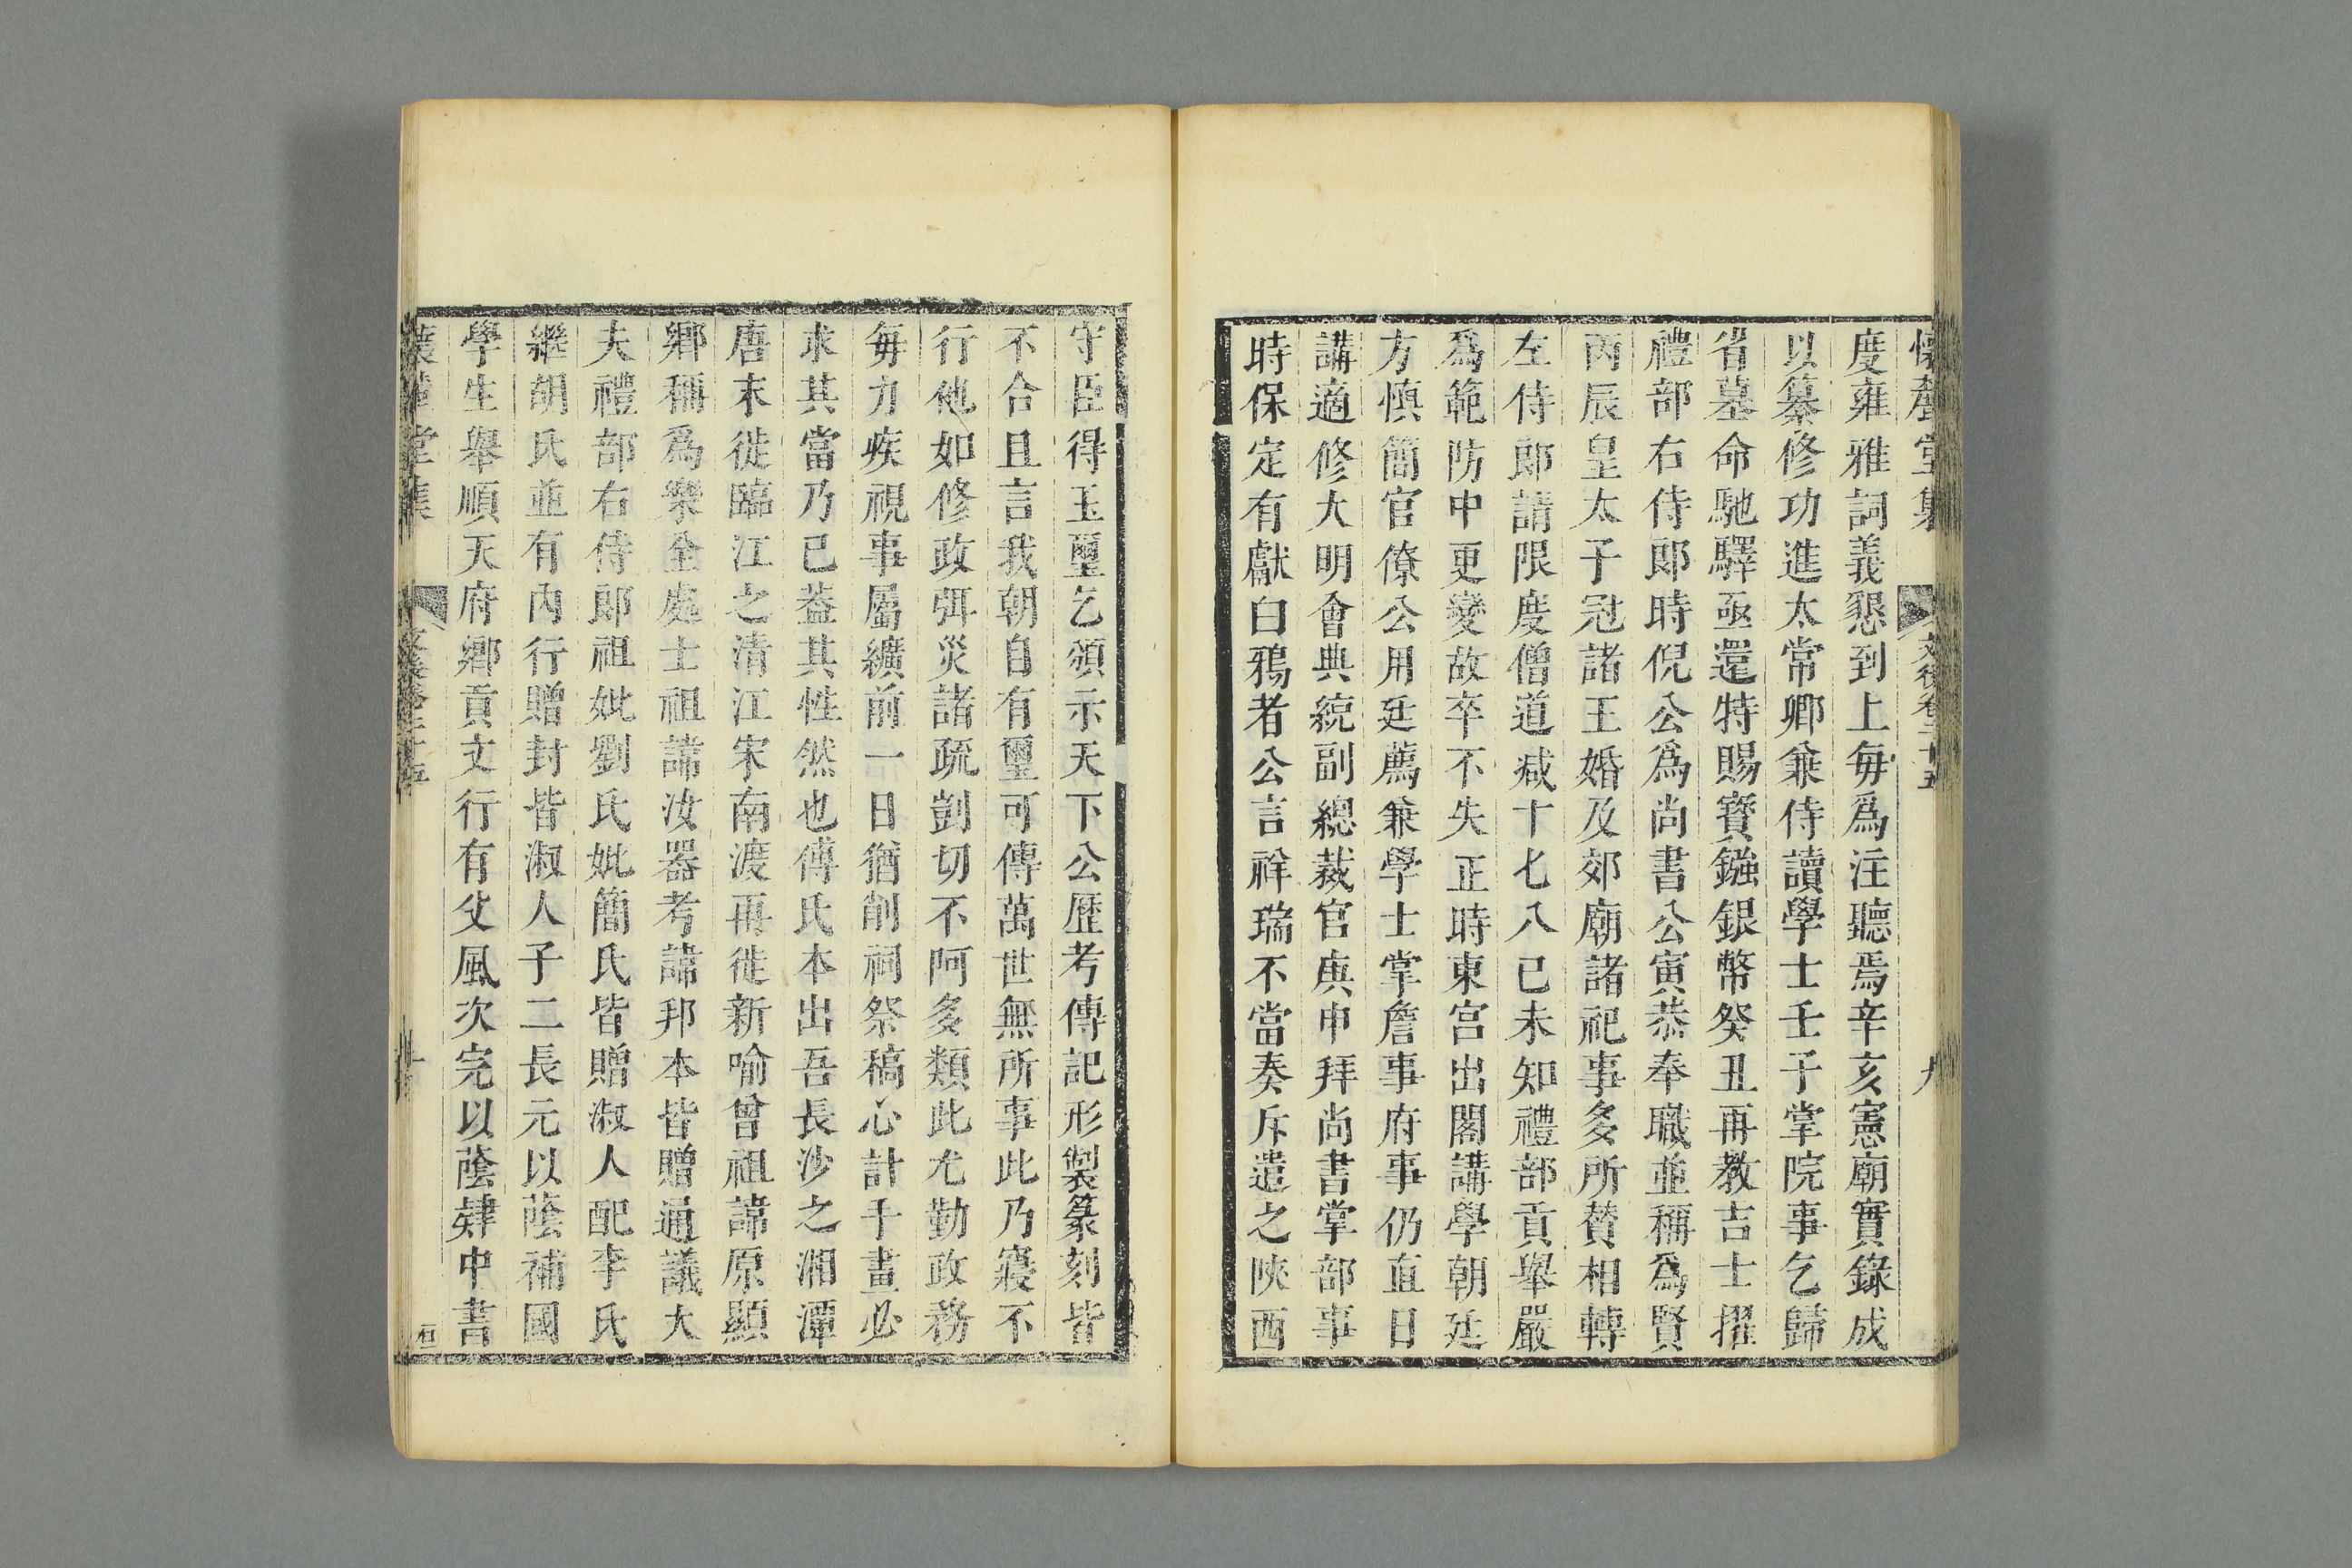 懷麓堂集 文後卷二十五 九
度雍雅詞義懇到上每爲注聽焉辛亥憲廟實錄成
以纂修功進太常卿兼侍讀學士壬子掌院事乞歸
省墓命馳驛亟還特賜寶鏹銀幣癸丑再教吉士擢
禮部右侍郎時倪公爲尚書公寅恭奉職並稱爲賢
丙辰皇太子冠諸王婚及郊廟諸祀事多所賛相轉
左侍郎請限度僧道減十七八已未知禮部貢舉嚴
爲範防中更變故卒不失正時東宮出閣講學朝廷
方慎簡官僚公用廷薦兼學士掌詹事府事仍直日
講適修大明會典統副總裁官庚申拜尚書掌部事
時保定有獻白鴉者公言祥瑞不當奏斥遣之陝西
守臣得玉璽乞頒示天下公歷考傳記形製篆刻皆
不合且言我朝自有璽可傳萬世無所事此乃寢不
行他如修政弭災諸疏剴切不阿多類此尤勤政務
每力疾視事屬纊前一日猶削祠祭稿心計手畫必
求其當乃已蓋其性然也傅氏本出吾長沙之湘潭
唐末徙臨江之清江宋南渡再徙新喻曾祖諱原顯
鄉稱爲樂全處士祖諱汝器考諱邦本皆贈通議大
夫禮部右侍郎祖妣劉氏妣簡氏皆贈淑人配李氏
繼胡氏並有內行贈封皆淑人子二長元以蔭補國
學生舉順天府鄉貢文行有父風次完以蔭肄中書
堂集 十